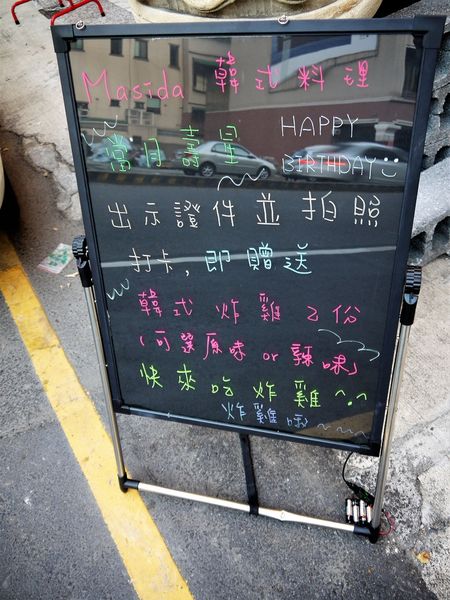 Masida 韓式料理
當月壽星 HAPPY BIRTHDAY
出示證件並拍照
打卡,即贈送
韓式炸雞2份
(可選原味 or 辣味)
快來吃炸雞^.^
炸雞呀